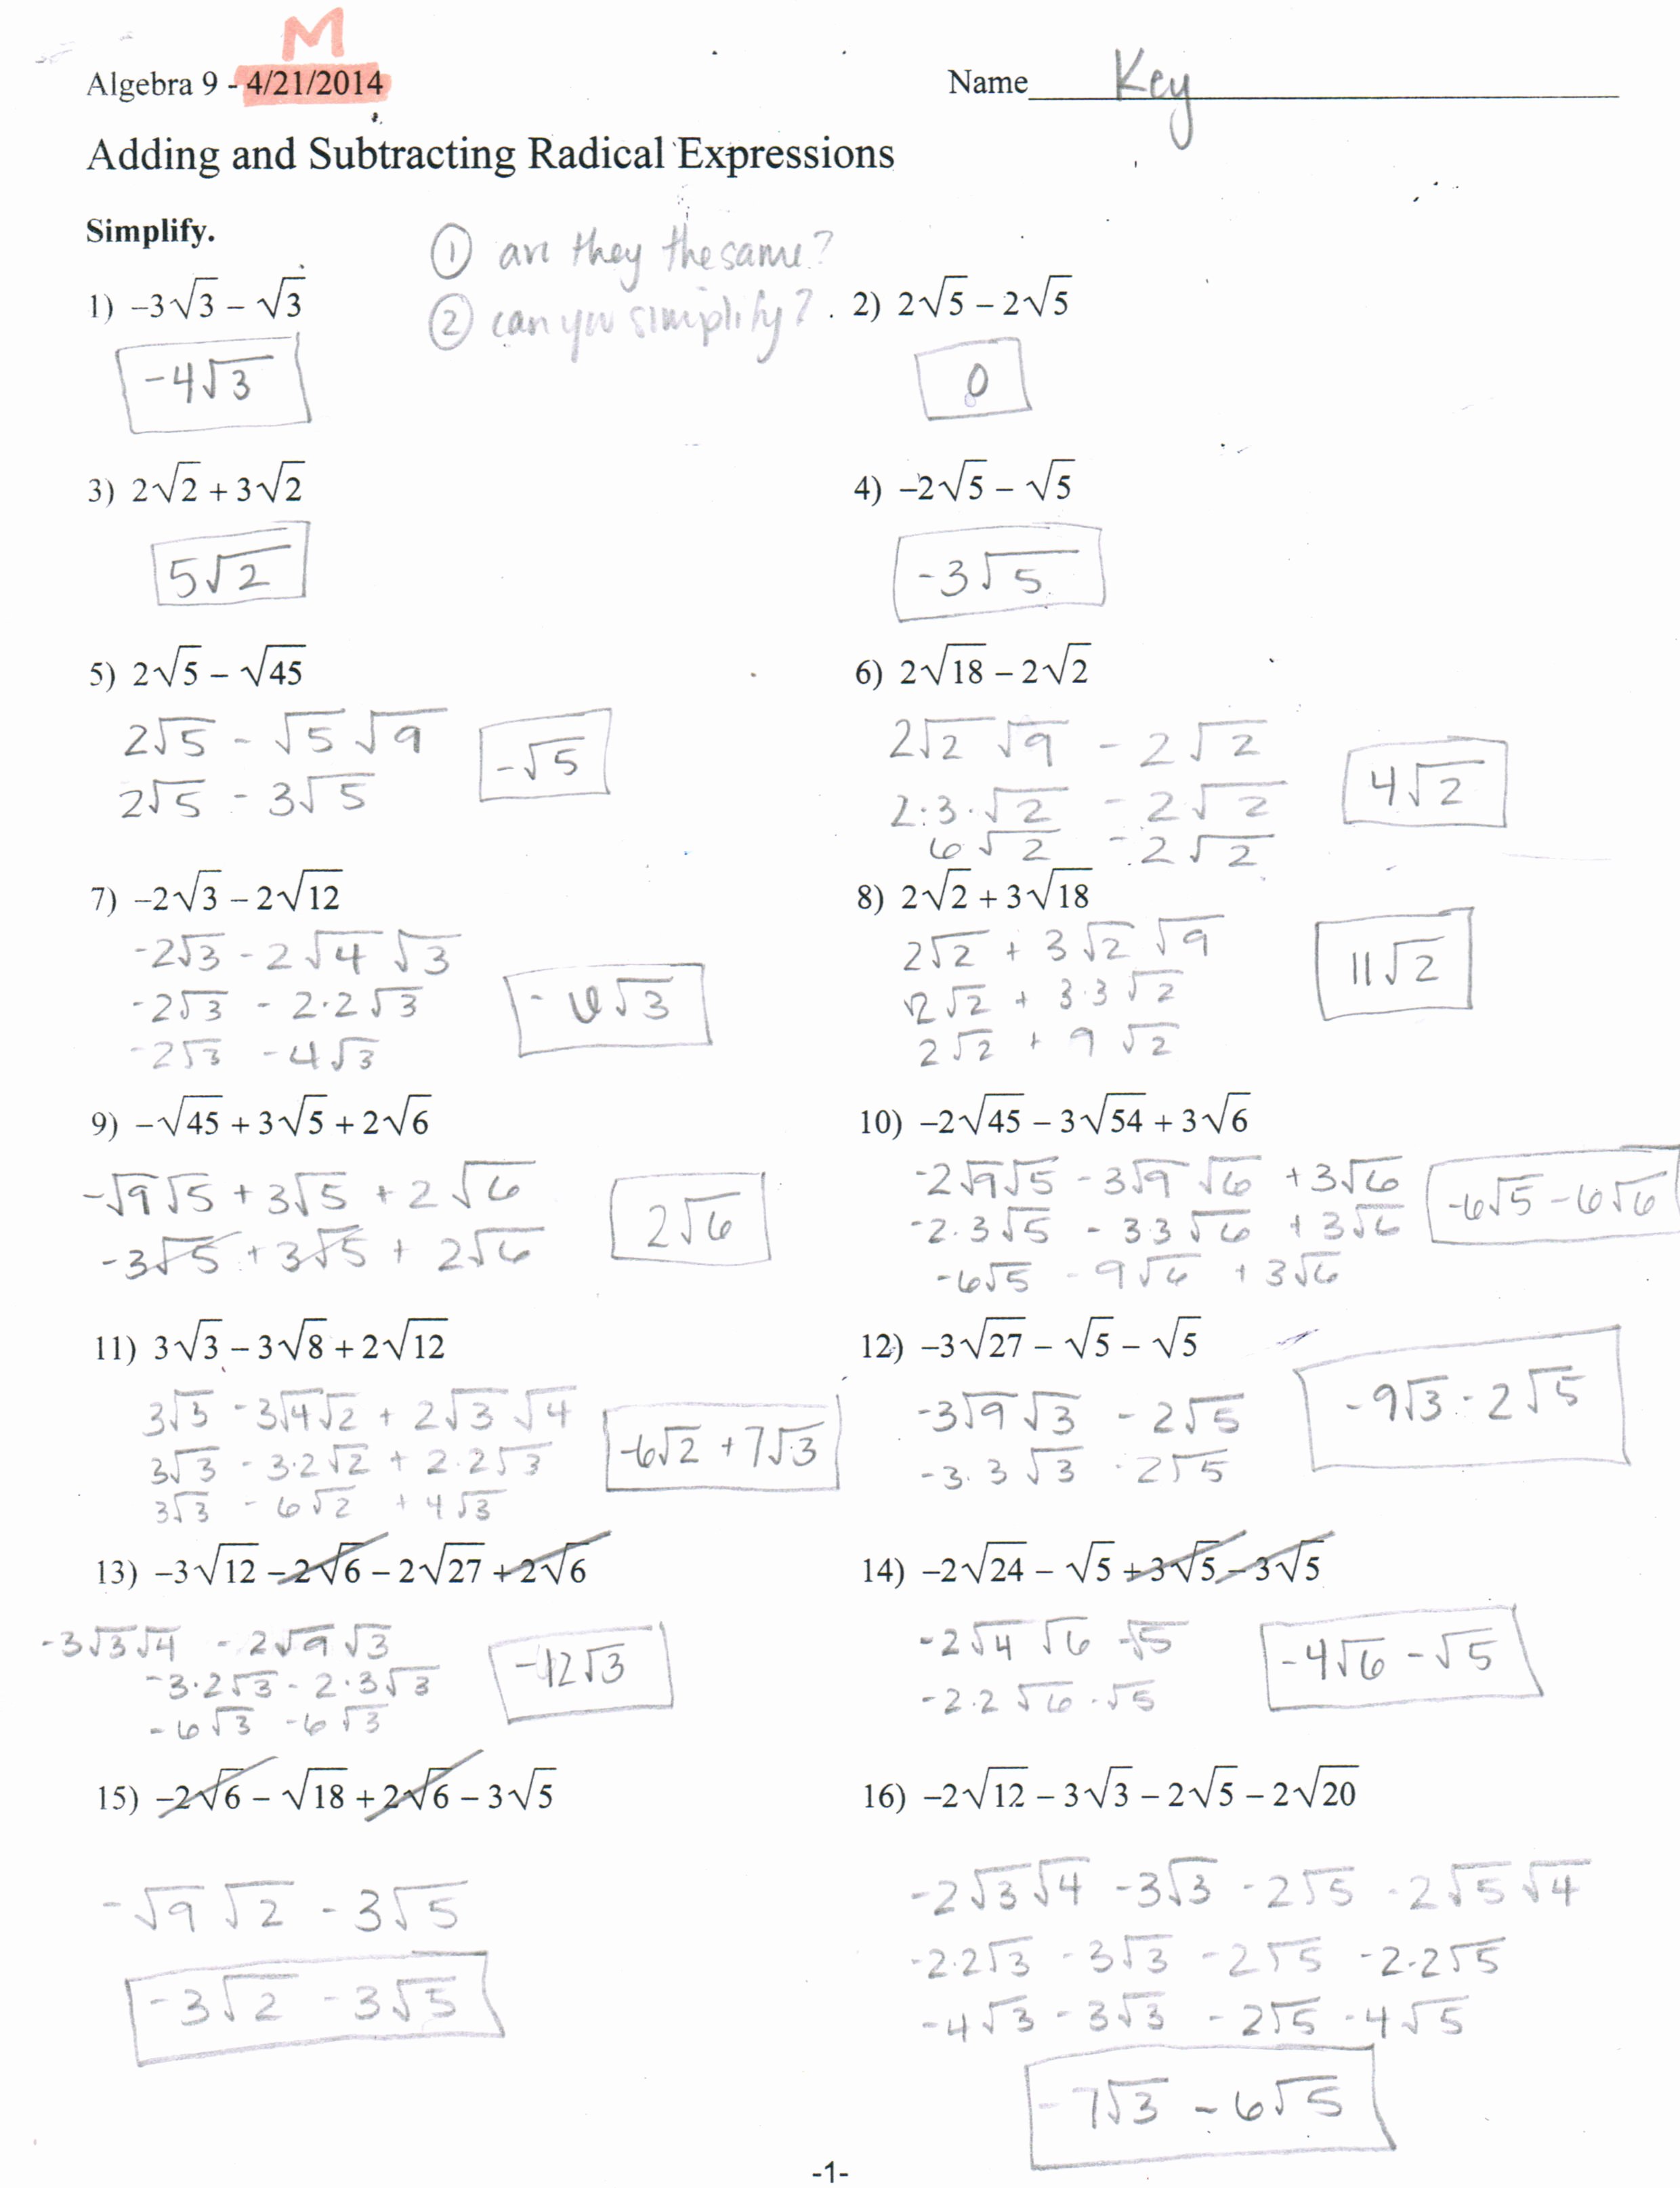 M
Algebra 9 - 4/21/2014
Name Key
Adding and Subtracting Radical Expressions
Simplify.
① are they the same?
② can you simplify?
1) −3√3 − √3
-4√3
2) 2√5 − 2√5
0
3) 2√2 + 3√2
5√2
4) −2√5 − √5
-3√5
5) 2√5 − √45
2√5 - √5 √9
2√5 - 3√5
-√5
6) 2√18 − 2√2
2√2 √9 - 2√2
2·3·√2 - 2√2
6√2 - 2√2
4√2
7) −2√3 − 2√12
-2√3 - 2√4 √3
-2√3 - 2·2√3
-2√3 - 4√3
-6√3
8) 2√2 + 3√18
2√2 + 3√2 √9
2√2 + 3·3√2
2√2 + 9√2
11√2
9) −√45 + 3√5 + 2√6
-√9√5 + 3√5 + 2√6
-3√5 + 3√5 + 2√6
2√6
10) −2√45 − 3√54 + 3√6
-2√9√5 - 3√9 √6 + 3√6
-2·3√5 - 3·3√6 + 3√6
-6√5 - 9√6 + 3√6
-6√5 - 6√6
11) 3√3 − 3√8 + 2√12
3√3 - 3√4√2 + 2√3 √4
3√3 - 3·2√2 + 2·2√3
3√3 - 6√2 + 4√3
-6√2 + 7√3
12) −3√27 − √5 − √5
-3√9 √3 - 2√5
-3·3√3 - 2√5
-9√3 - 2√5
13) −3√12 − 2√6 − 2√27 + 2√6
-3√3√4 - 2√9√3
-3·2√3 - 2·3√3
-6√3 - 6√3
-12√3
14) −2√24 − √5 + 3√5 − 3√5
-2√4 √6 -√5
-2·2√6 -√5
-4√6 - √5
15) −2√6 − √18 + 2√6 − 3√5
-√9 √2 - 3√5
-3√2 - 3√5
16) −2√12 − 3√3 − 2√5 − 2√20
-2√3√4 - 3√3 - 2√5 - 2√5√4
-2·2√3 - 3√3 - 2√5 - 2·2√5
-4√3 - 3√3 - 2√5 - 4√5
-7√3 - 6√5
-1-